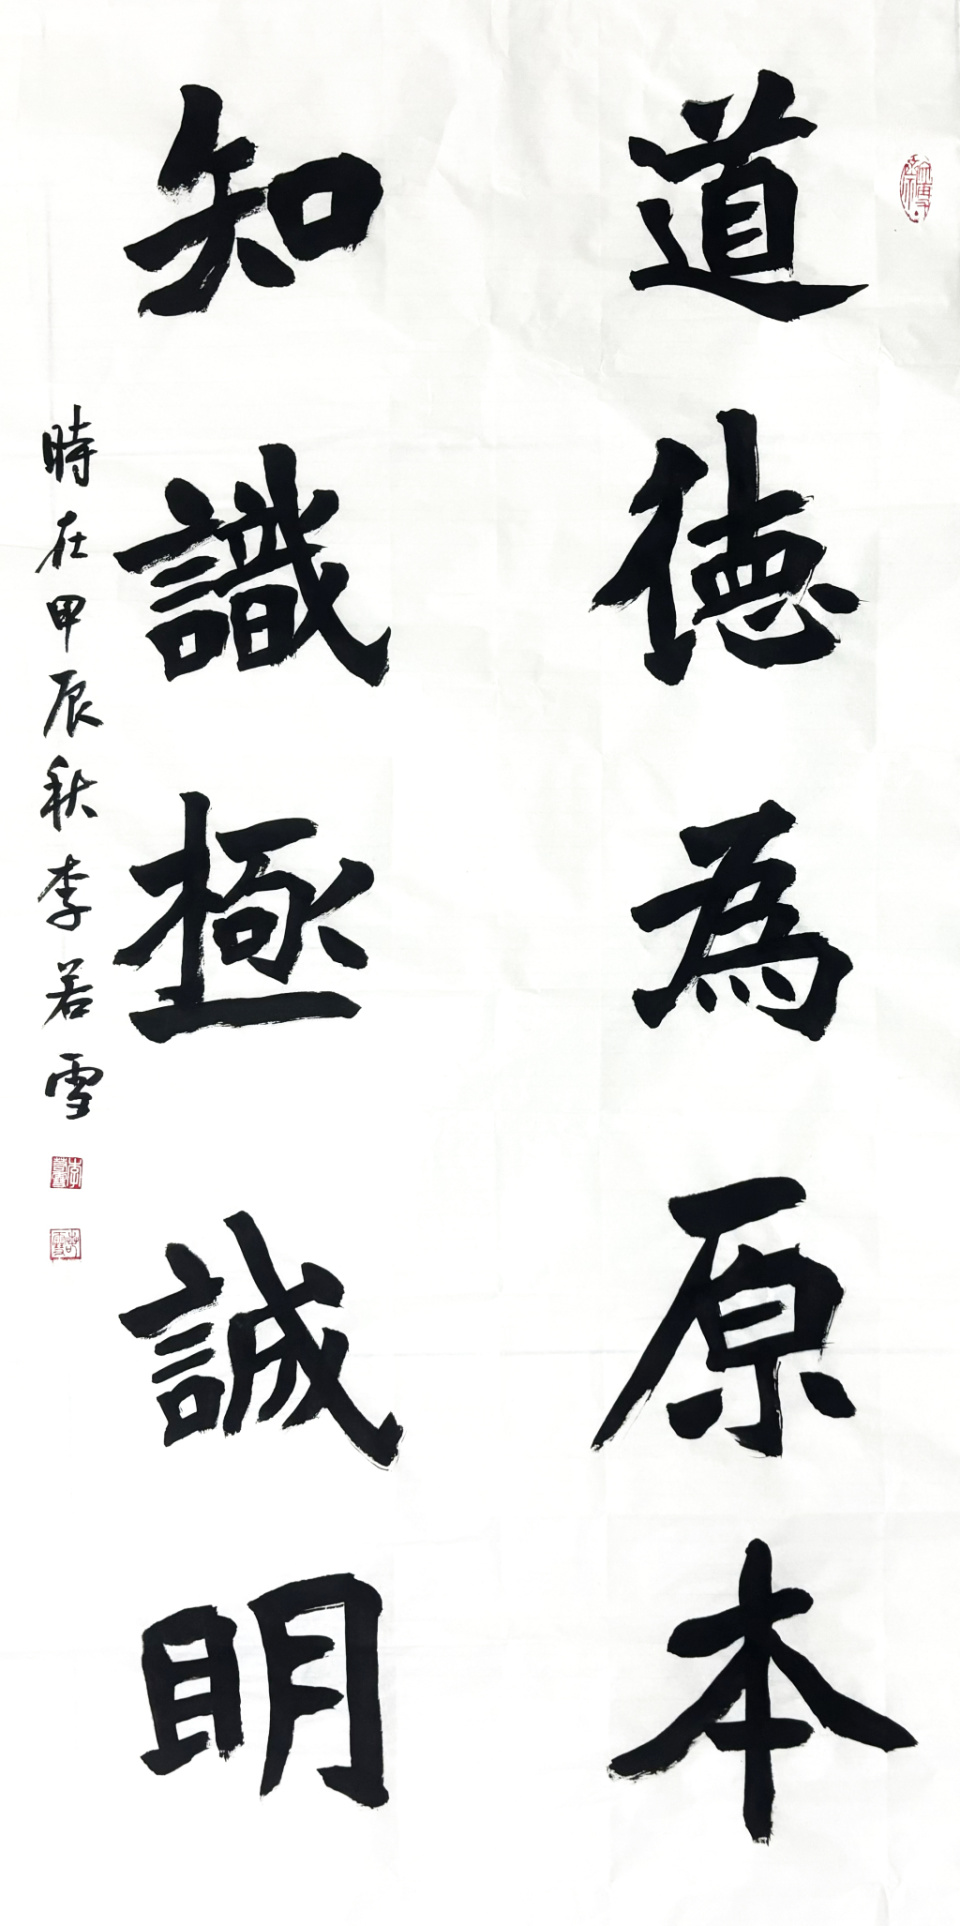 道德為原本
知識極誠明
時在甲辰秋李若雪